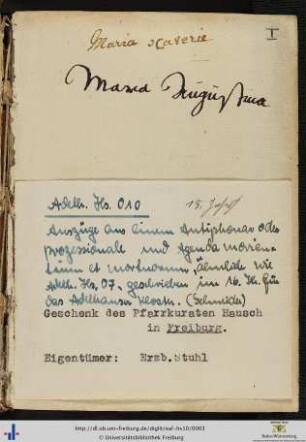 I
Maria Xaverie
Maria Augustina
Adelh. Hs. 010
Auszüge aus einem Antiphonar oder
Prozessionale und Agenda morien-
tium et mortuorum, ähnlich wie
Adelh. Hs. 07, geschrieben im 16. Jh. für
das Adelhauser Kloster. (Schmidt)
Geschenk des Pfarrkuraten Hausch
in Freiburg.
Eigentümer: Erzb.Stuhl
http://dl.ub.uni-freiburg.de/diglit/eaf-hs10/0003
© Universitätsbibliothek Freiburg
Baden-Württemberg